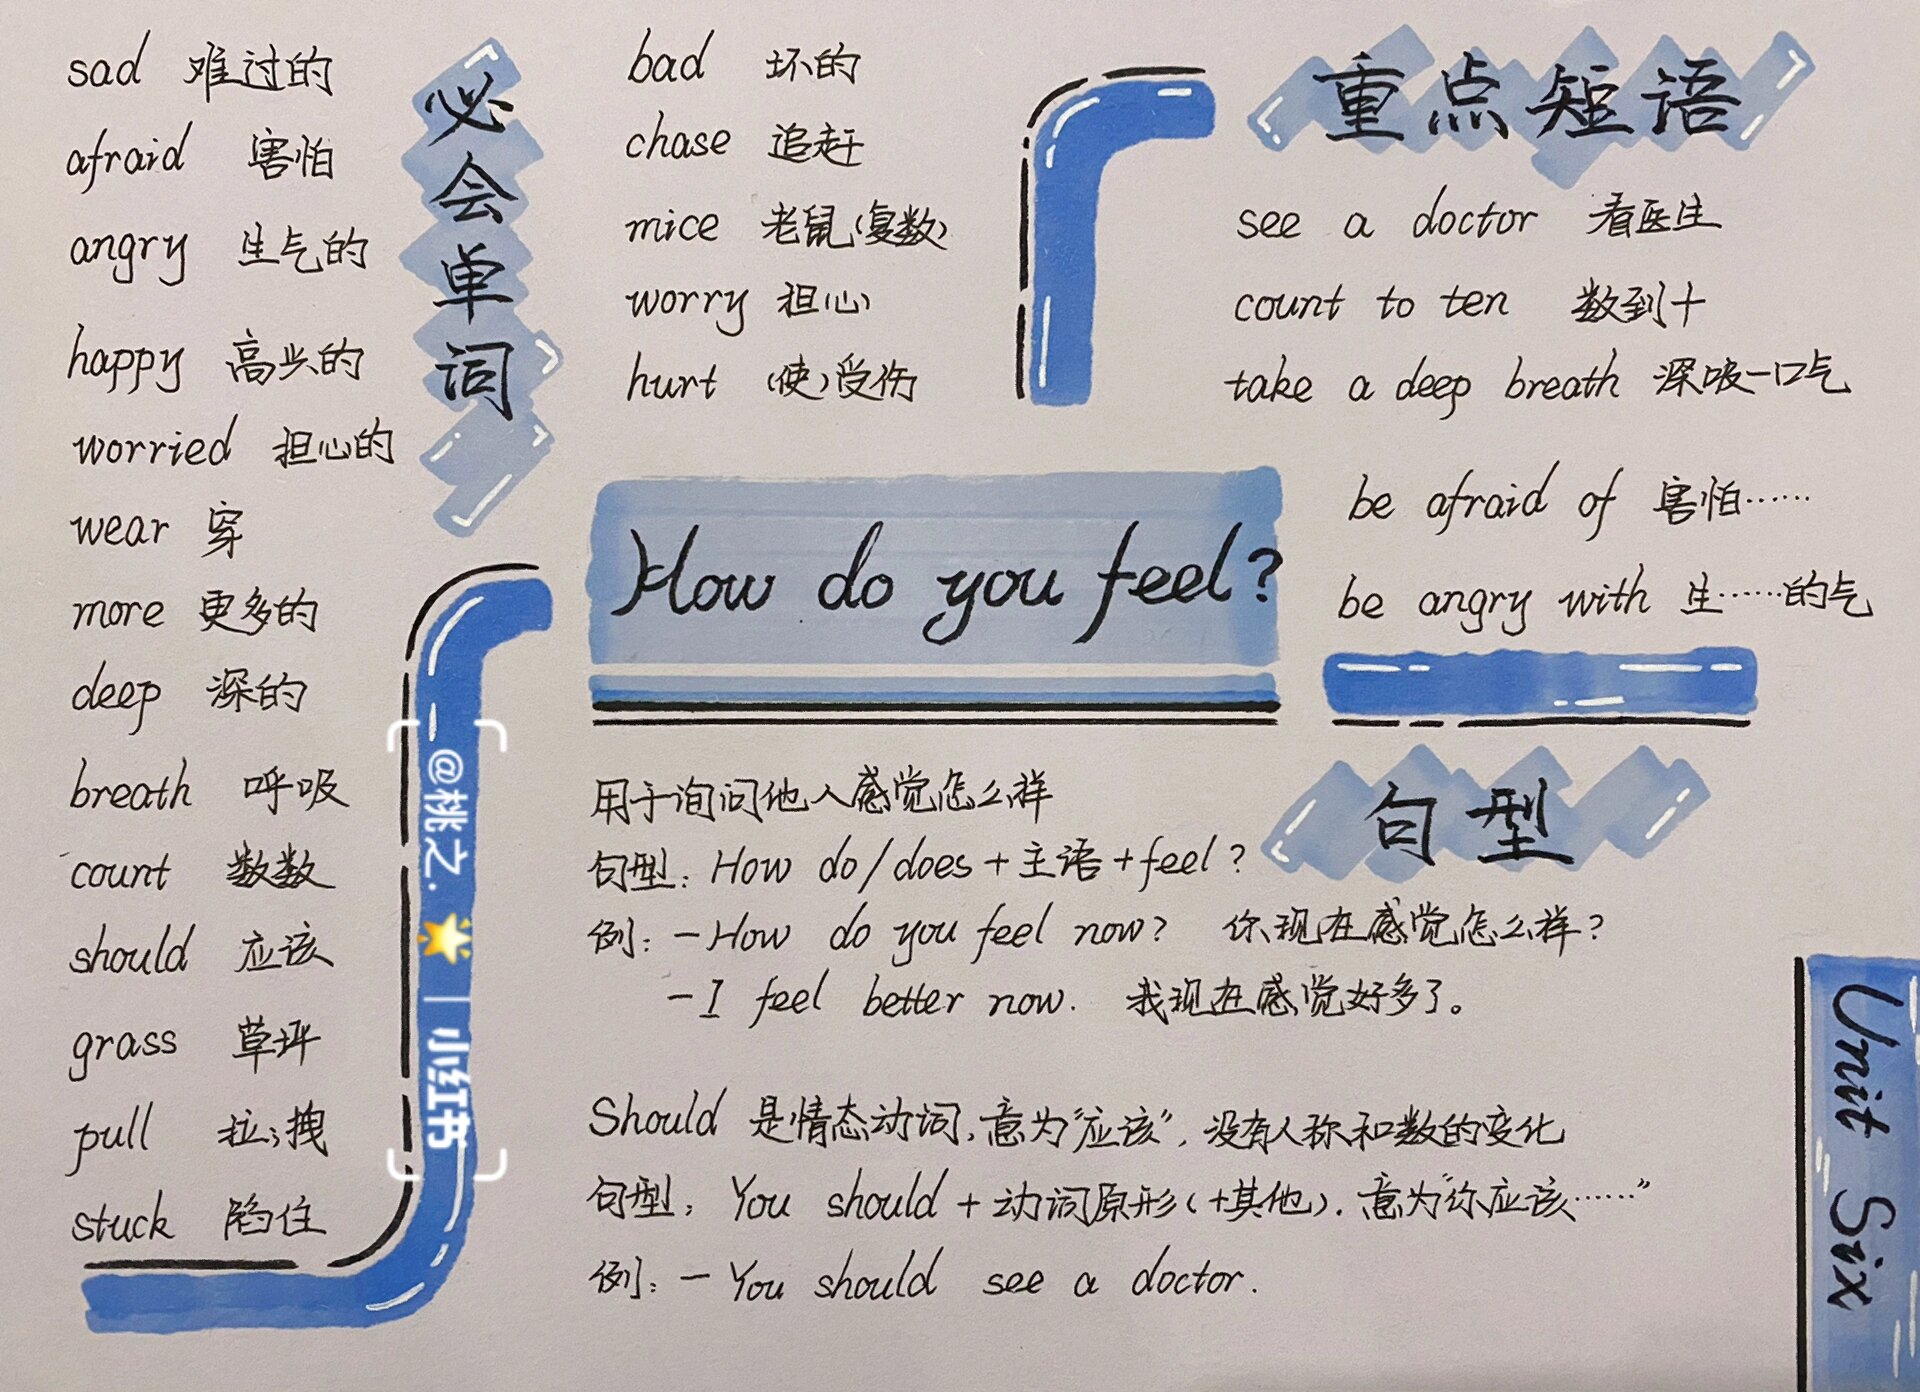 必会单词
sad 难过的
afraid 害怕
angry 生气的
happy 高兴的
worried 担心的
wear 穿
more 更多的
deep 深的
breath 呼吸
count 数数
should 应该
grass 草坪
pull 拉;拽
stuck 陷住
bad 坏的
chase 追赶
mice 老鼠(复数)
worry 担心
hurt (使)受伤
重点短语
see a doctor 看医生
count to ten 数到十
take a deep breath 深吸一口气
be afraid of 害怕……
be angry with 生……的气
How do you feel?
句型
用于询问他人感觉怎么样
句型: How do/does+主语+feel?
例: -How do you feel now? 你现在感觉怎么样?
-I feel better now. 我现在感觉好多了。
Should 是情态动词,意为"应该",没有人称和数的变化
句型: You should+动词原形(+其他).意为"你应该……"
例: - You should see a doctor.
Unit Six
@桃之.🌟 | 小红书